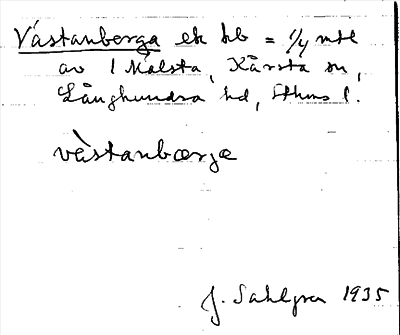 Västanberga ek hb = 1/4 mtl
av 1 Målsta, Kårsta sn,
Långhundra hd, Sthms l.
västanbærja
J. Sahlgren 1935